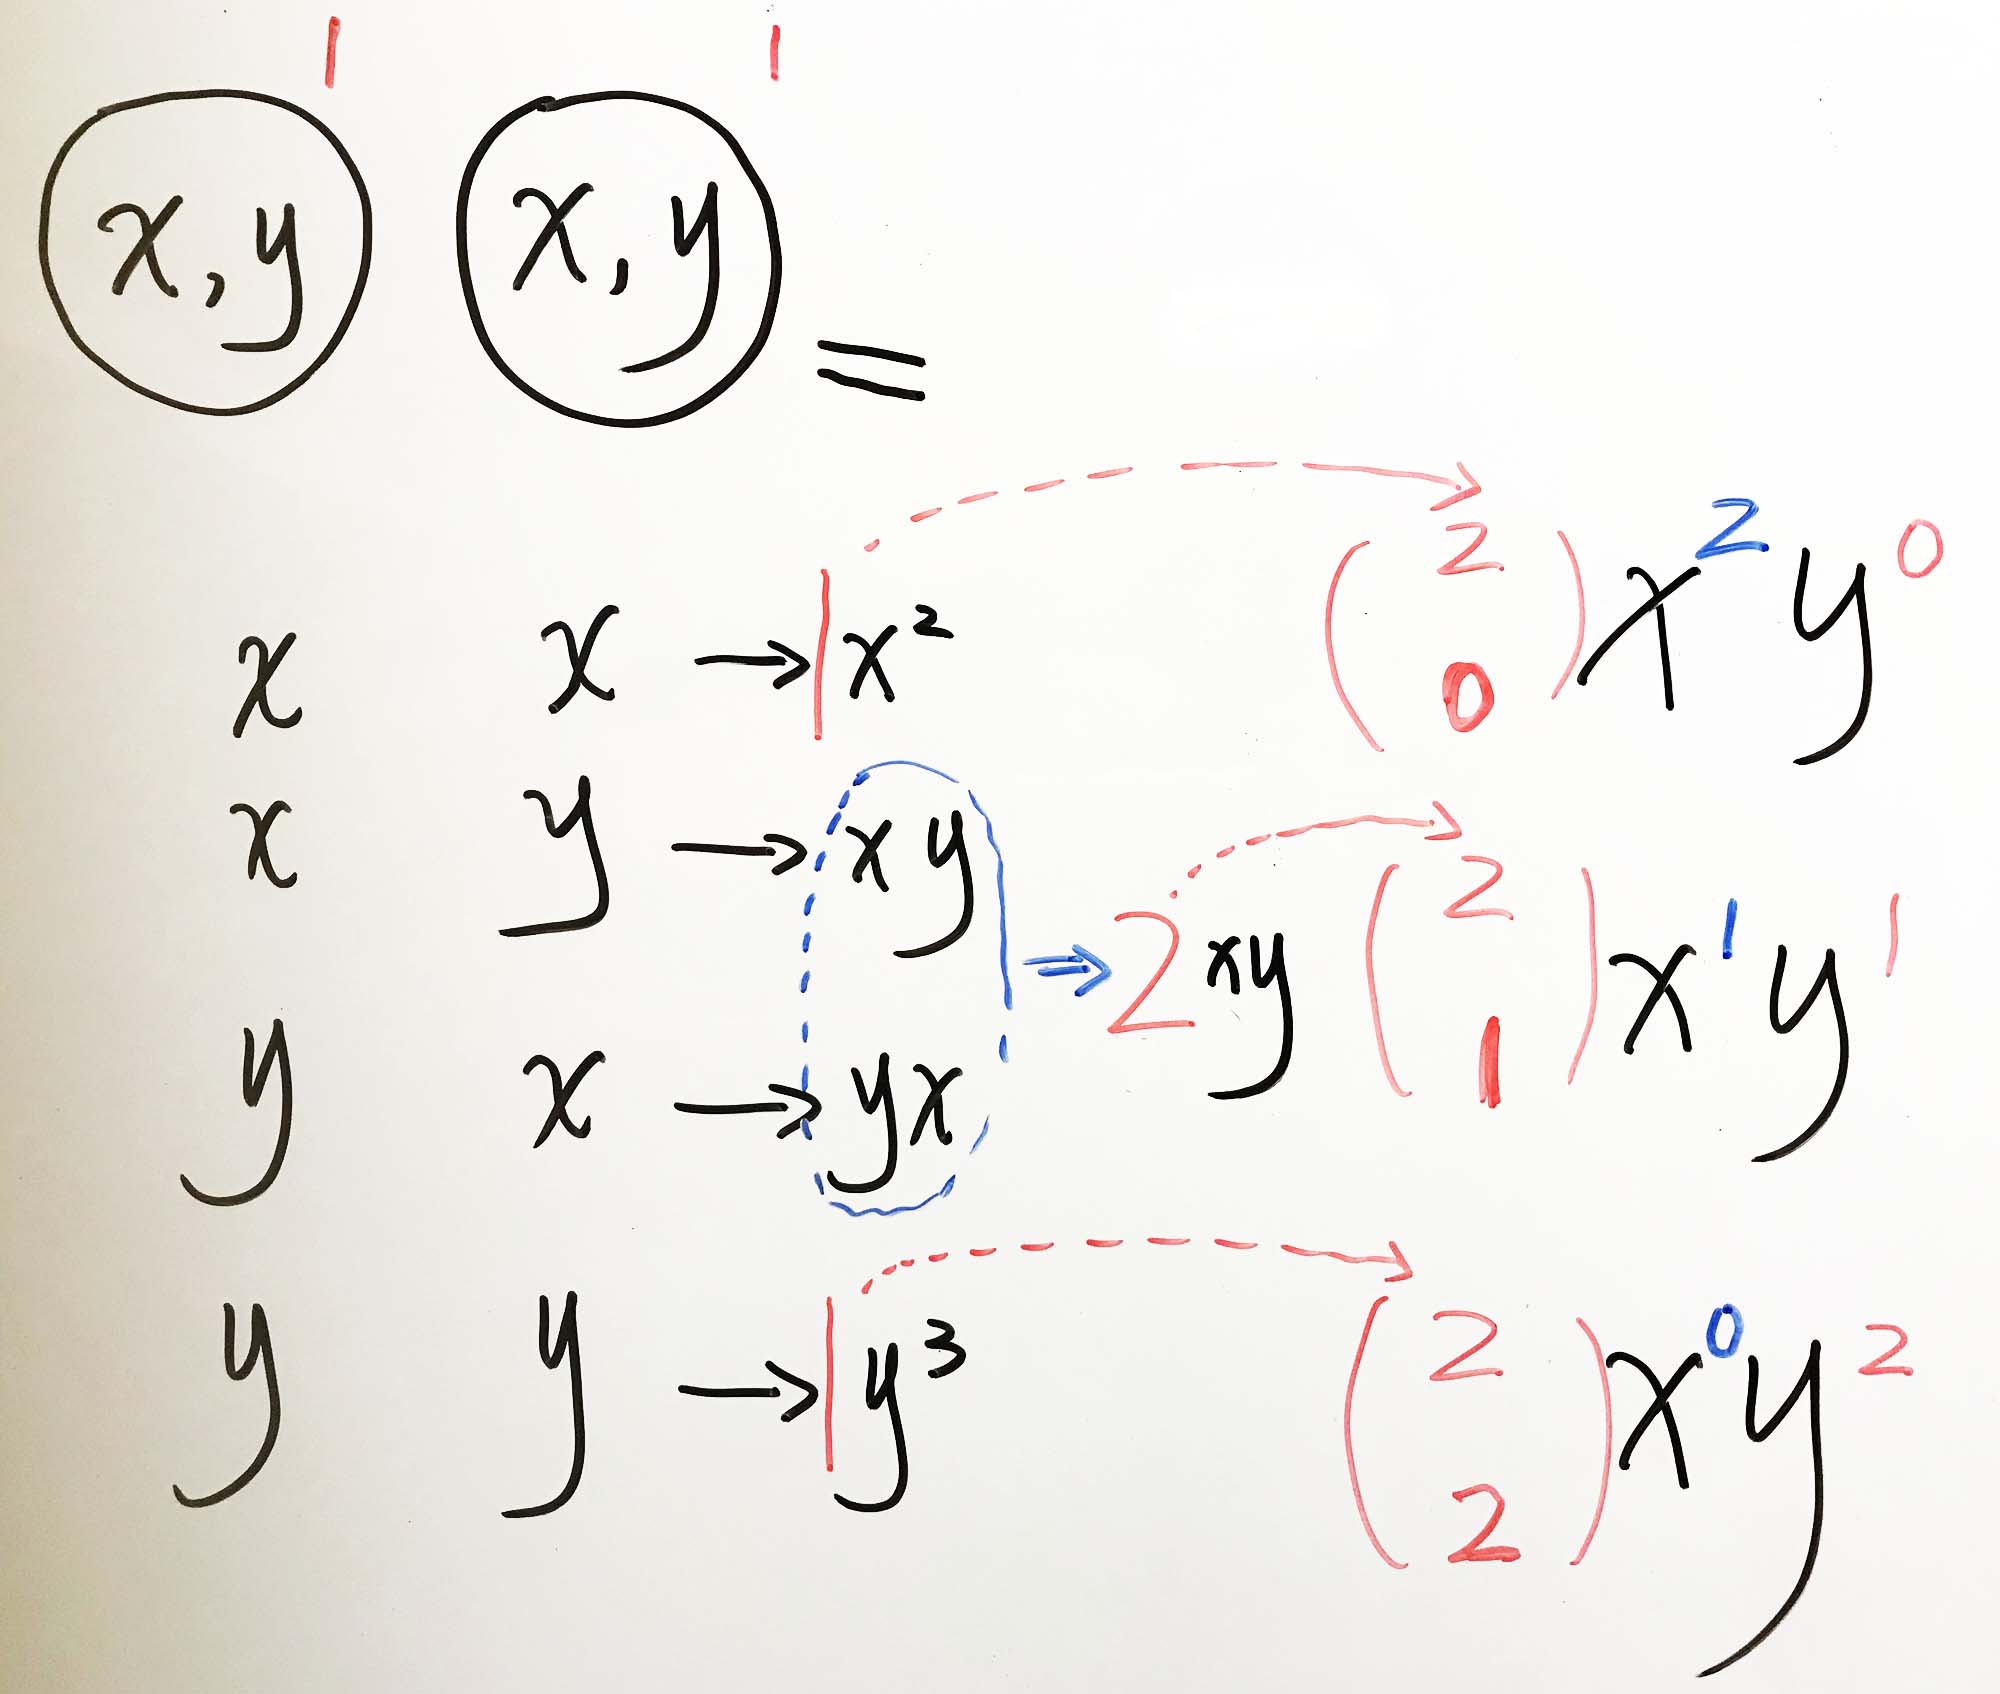 1 1
x,y x,y =
x x → 1x² (2 0) x²y⁰
x y → xy
⇒ 2xy (2 1) x¹y¹
y x → yx
y y → 1y³ (2 2) x⁰y²